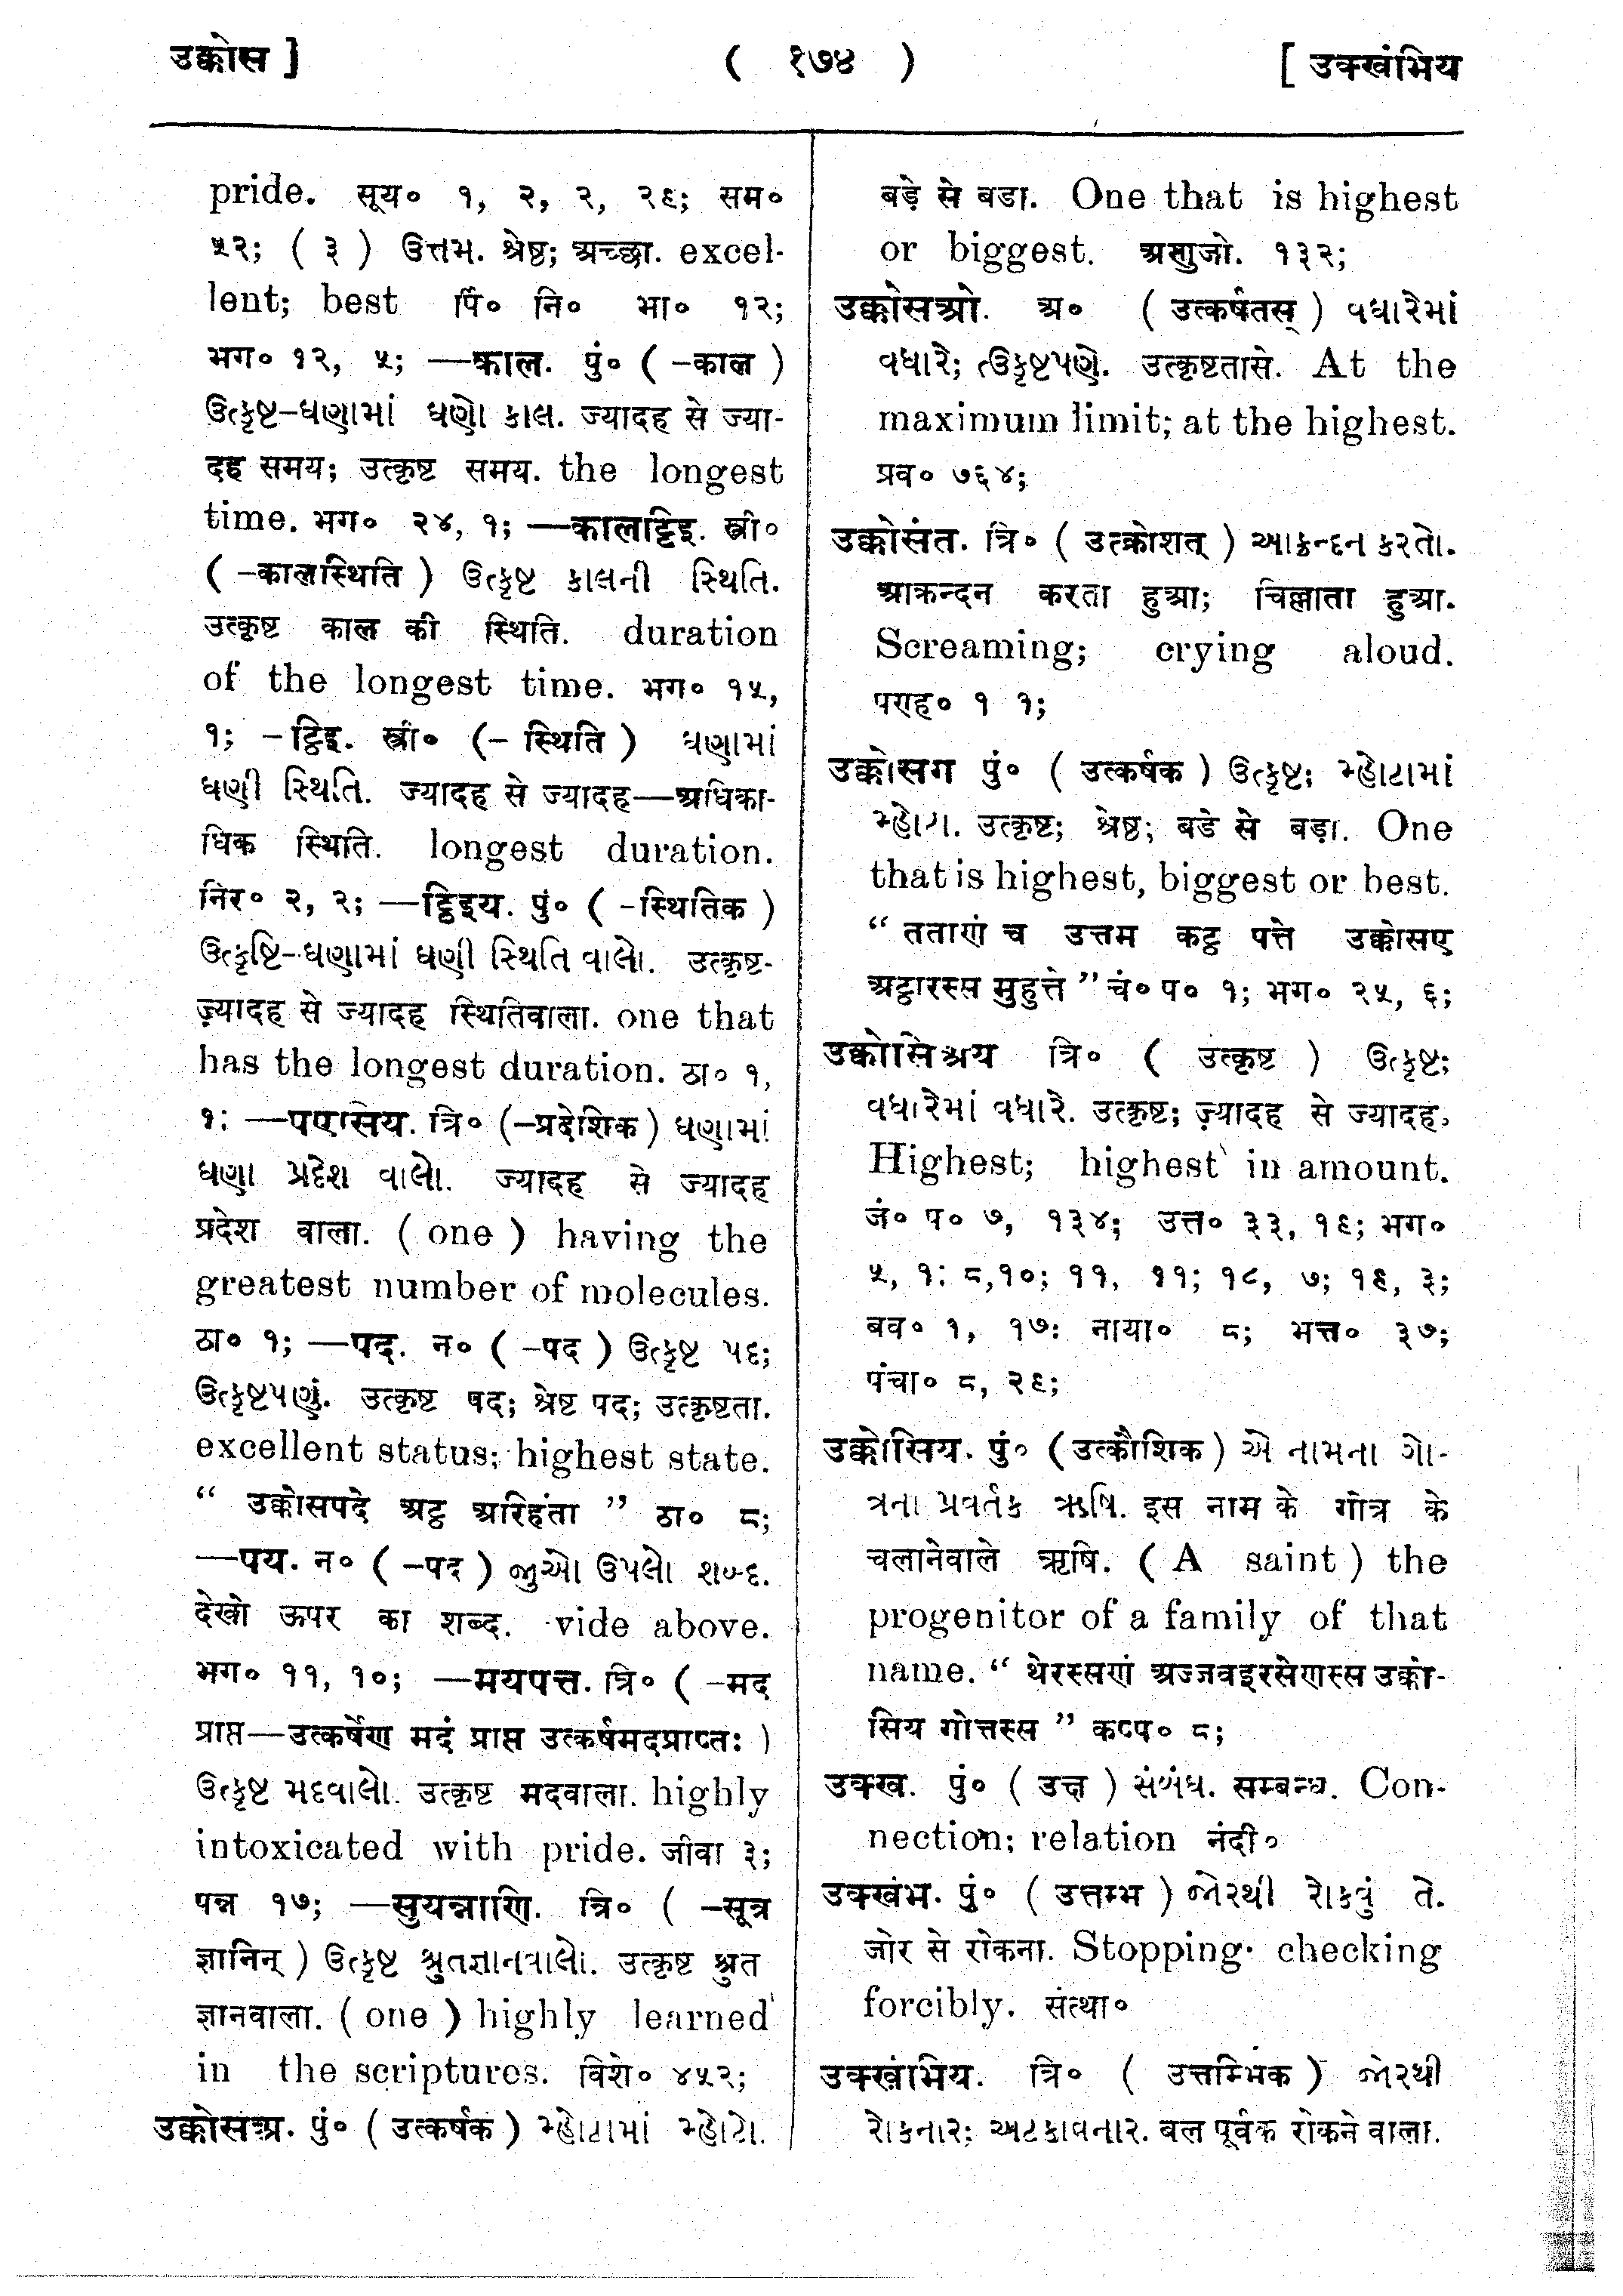 उक्कोस ]
( १७४ )
[ उक्खंभिय
pride. सूय० १, २, २, २९; सम०
५२; ( ३ ) ઉત્તમ. श्रेष्ठ; अच्छा. excel-
lent; best पिं० नि० भा० १२;
भग० १२, ५; —काल. पुं० ( -काल )
ઉત્કૃષ્ટ-ઘણામાં ઘણો કાલ. ज्यादह से ज्या-
दह समय; उत्कृष्ट समय. the longest
time. भग० २४, १; —कालट्टिइ. स्त्री०
( -कालस्थिति ) ઉત્કૃષ્ટ કાલની સ્થિતિ.
उत्कृष्ट काल की स्थिति. duration
of the longest time. भग० १५,
१; -ट्ठिइ. स्त्री० (- स्थिति ) ઘણામાં
ઘણી સ્થિતિ. ज्यादह से ज्यादह—अधिका-
धिक स्थिति. longest duration.
निर० २, २; —ट्ठिइय. पुं० ( -स्थितिक )
ઉત્કૃષ્ટિ-ઘણામાં ઘણી સ્થિતિ વાલો. उत्कृष्ट-
ज़्यादह से ज्यादह स्थितिवाला. one that
has the longest duration. ठा० १,
१; —पएसिय. त्रि० (-प्रदेशिक) ઘણામાં
ઘણા પ્રદેશ વાલો. ज्यादह से ज्यादह
प्रदेश वाला. ( one ) having the
greatest number of molecules.
ठा० १; —पद. न० ( -पद ) ઉત્કૃષ્ટ પદ;
ઉત્કૃષ્ટપણું. उत्कृष्ट पद; श्रेष्ट पद; उत्कृष्टता.
excellent status; highest state.
“ उक्कोसपदे अट्ठ अरिहंता ” ठा० ८;
—पय. न० ( -पद ) જુઓ ઉપલો શબ્દ.
देखो ऊपर का शब्द. vide above.
भग० ११, १०; —मयपत्त. त्रि० ( -मद
प्राप्त—उत्कर्षेण मदं प्राप्त उत्कर्षमदप्राप्तः )
ઉત્કૃષ્ટ મદવાલો. उत्कृष्ट मदवाला. highly
intoxicated with pride. जीवा ३;
पन्न १७; —सुयन्नाणि. त्रि० ( -सूत्र
ज्ञानिन् ) ઉત્કૃષ્ટ શ્રુતજ્ઞાનવાલો. उत्कृष्ट श्रुत
ज्ञानवाला. ( one ) highly learned
in the scriptures. विशे० ४५२;
उक्कोसअ. पुं० ( उत्कर्षक ) મ્હોટામાં મ્હોટો.
बड़े से बडा. One that is highest
or biggest. अणुजो. १३२;
उक्कोसओ. अ० ( उत्कर्षतस् ) વધારેમાં
વધારે; ઉત્કૃષ્ટપણે. उत्कृष्टतासे. At the
maximum limit; at the highest.
प्रव० ७६४;
उक्कोसंत. त्रि० ( उत्क्रोशत् ) આક્રન્દન કરતો.
आक्रन्दन करता हुआ; चिल्लाता हुआ.
Screaming; crying aloud.
पण्ह० १ १;
उक्कोसग पुं० ( उत्कर्षक ) ઉત્કૃષ્ટ; મ્હોટામાં
મ્હોટા. उत्कृष्ट; श्रेष्ठ; बडे से बड़ा. One
that is highest, biggest or best.
“ तताणं च उत्तम कट्ठ पत्ते उक्कोसए
अट्ठारस्स मुहुत्ते ” चं० प० १; भग० २५, ६;
उक्कोसिअय त्रि० ( उत्कृष्ट ) ઉત્કૃષ્ટ;
વધારેમાં વધારે. उत्कृष्ट; ज़्यादह से ज्यादह.
Highest; highest in amount.
जं० प० ७, १३४; उत्त० ३३, १९; भग०
५, १; ८,१०; ११, ११; १८, ७; १९, ३;
बव० १, १७; नाया० ८; भत्त० ३७;
पंचा० ८, २९;
उक्कोसिय. पुं० ( उत्कौशिक ) એ નામના ગો-
ત્રના પ્રવર્તક ઋષિ. इस नाम के गोत्र के
चलानेवाले ऋषि. ( A saint ) the
progenitor of a family of that
name. “ थेरस्सणं अज्जवइरसेणस्स उक्को-
सिय गोत्तस्स ” कप्प० ८;
उक्ख. पुं० ( उक्ष ) સંબંધ. सम्बन्ध. Con-
nection; relation नंदी०
उक्खंभ. पुं० ( उत्तम्भ ) જોરથી રોકવું તે.
जोर से रोकना. Stopping; checking
forcibly. संत्था०
उक्खंभिय. त्रि० ( उत्तम्भिक ) જોરથી
રોકનાર; અટકાવનાર. बल पूर्वक रोकने वाला.